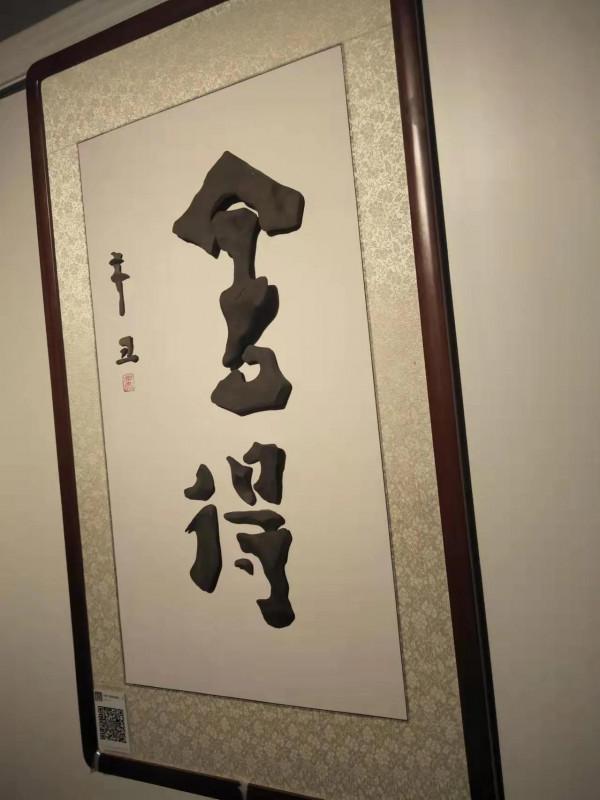 舍得
辛丑